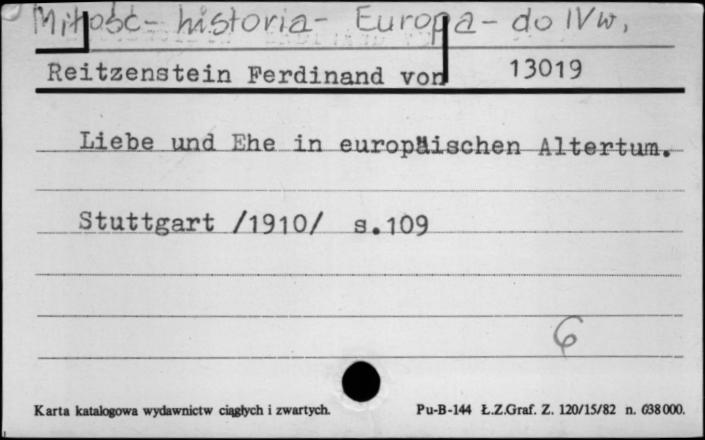 Miłość - historia - Europa - do IV w,
Reitzenstein Ferdinand von 13019
Liebe und Ehe in europäischen Altertum.
Stuttgart /1910/ s.109
6
Karta katalogowa wydawnictw ciągłych i zwartych. Pu-B-144 Ł.Z.Graf. Z. 120/15/82 n. 638 000.